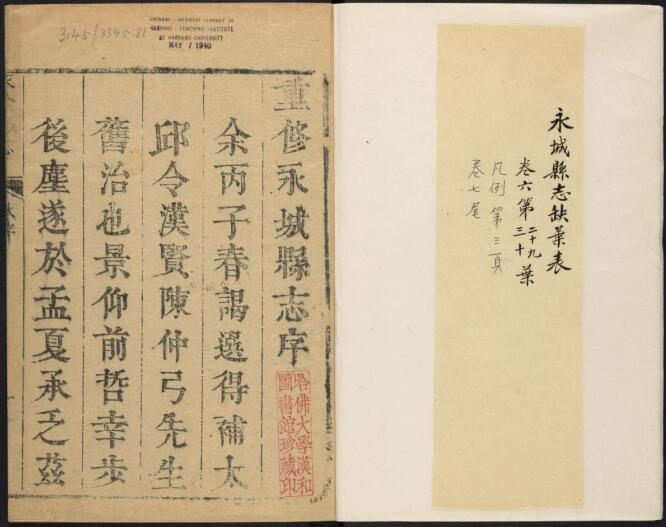 永城縣志缺葉表
卷六第二十九三十葉
凡例第三頁
卷七尾
3145/3345.81
CHINESE-JAPANESE LIBRARY OF
HARVARD-YENCHING INSTITUTE
AT HARVARD UNIVERSITY
MAY 7 1940
重修永城縣志序
余丙子春謁選得補太
邱令漢賢陳仲弓先生
舊治也景仰前哲幸步
後塵遂於孟夏承乏茲
哈佛大學漢和
圖書館珍藏印